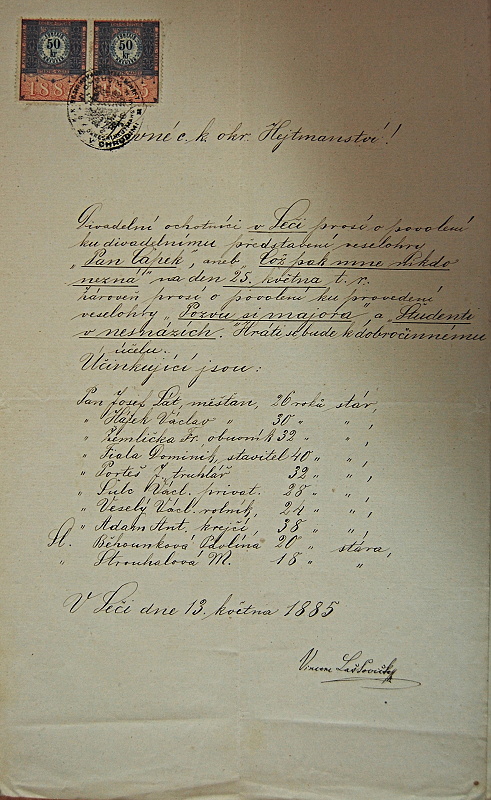 50 kr 50 kr
188 5
CHRUDIMI
né c. k. okr. Hejtmanství!
Divadelní ochotníci v Seči prosí o povolení
ku divadelnímu představení veselohry
„Pan Čapek", aneb „Což pak mne nikdo
nezná" na den 25. května t. r.
zároveň prosí o povolení ku provedení
veselohry „Pozvu si majora" a „Študenti
v nesnázích." Hráti se bude k dobročinnému
účelu.
Účinkující jsou:
Pan Josef Sát, měšťan, 26 roků stár,
„ Hájek Václav „ 30 „ „ ,
„ Žemlička Fr. obuvník 32 „ „ ,
„ Fiala Dominik, stavitel 40 „ „ ,
„ Porteš J. truhlář 32 „ „ ,
„ Šulc Václ. privat. 28 „ „ ,
„ Veselý Václ. rolník, 24 „ „ ,
„ Adam Ant. krejčí, 38 „ „ ,
Sl. Běhounková Odolína 20 „ stára,
„ Strouhalová M. 18 „ „
V Seči dne 13. května 1885